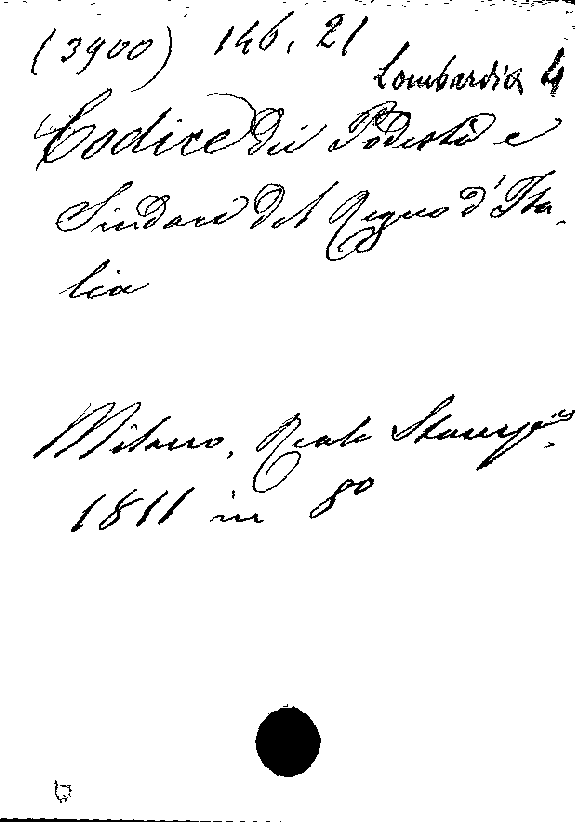 (3900) 146.21
Lombardia 4
Codice dei Podestà e
Sindaci del Regno d'Ita-
lia
Milano, Reale Stamp.ia
1811 in 8º